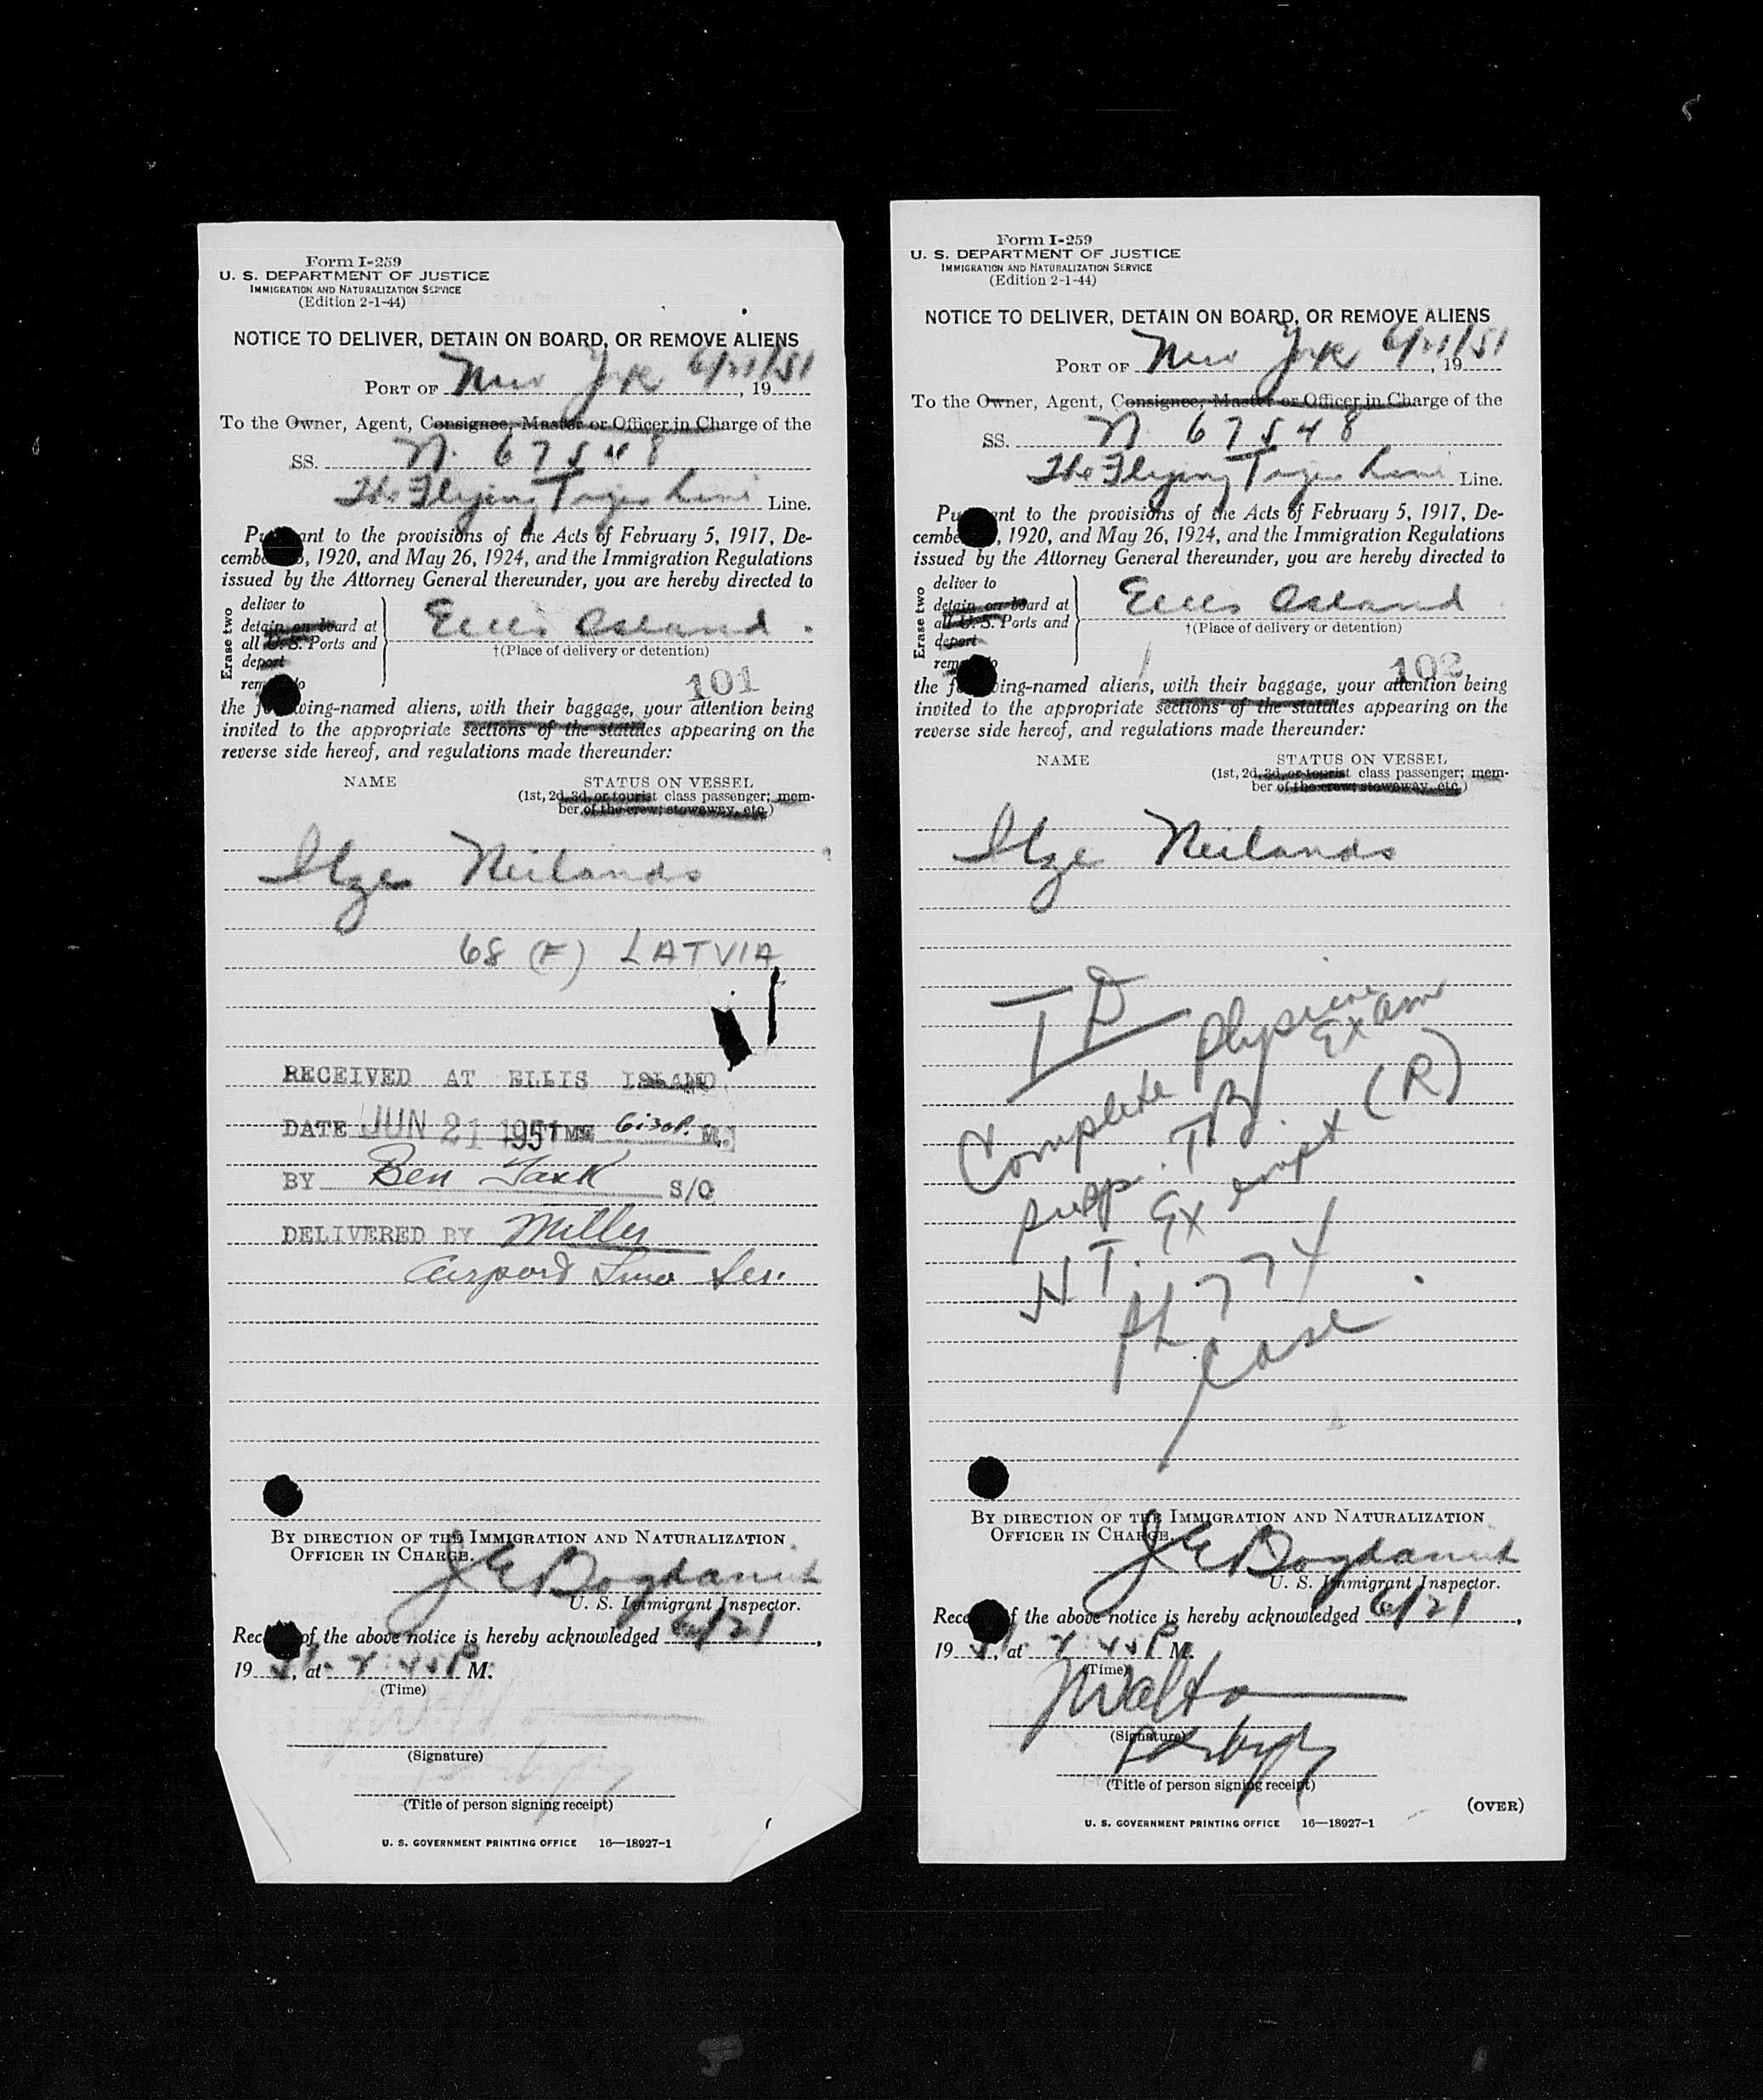 Form I-259
U. S. DEPARTMENT OF JUSTICE
IMMIGRATION AND NATURALIZATION SERVICE
(Edition 2-1-44)
NOTICE TO DELIVER, DETAIN ON BOARD, OR REMOVE ALIENS
PORT OF New York 6/21/51, 19
To the Owner, Agent, Consignee, Master or Officer in Charge of the
SS. N. 67548
The Flying Tiger Line Line.
Pu ant to the provisions of the Acts of February 5, 1917, De-
cembe , 1920, and May 26, 1924, and the Immigration Regulations
issued by the Attorney General thereunder, you are hereby directed to
Erase two
deliver to
detain on board at
all U. S. Ports and
deport
rem o
Ellis Island
†(Place of delivery or detention)
101
the f wing-named aliens, with their baggage, your attention being
invited to the appropriate sections of the statutes appearing on the
reverse side hereof, and regulations made thereunder:
NAME STATUS ON VESSEL
(1st, 2d, 3d, or tourist class passenger; mem-
ber of the crew; stowaway, etc.)
Ilze Neilands
68 (F) LATVIA
RECEIVED AT ELLIS ISLAND
DATE JUN 21 1951 TIME 6:30 P. M.
BY Ben S/O
DELIVERED BY Miller
Airport Limo Ser.
BY DIRECTION OF THE IMMIGRATION AND NATURALIZATION
OFFICER IN CHARGE.
U. S. Immigrant Inspector.
Rec of the above notice is hereby acknowledged 6/21,
19 51, at :45 P M.
(Time)
(Signature)
(Title of person signing receipt)
U. S. GOVERNMENT PRINTING OFFICE 16—18927-1
Form I-259
U. S. DEPARTMENT OF JUSTICE
IMMIGRATION AND NATURALIZATION SERVICE
(Edition 2-1-44)
NOTICE TO DELIVER, DETAIN ON BOARD, OR REMOVE ALIENS
PORT OF New York 6/21/51, 19
To the Owner, Agent, Consignee, Master or Officer in Charge of the
SS. N 67548
The Flying Tiger Line Line.
Pu ant to the provisions of the Acts of February 5, 1917, De-
cembe , 1920, and May 26, 1924, and the Immigration Regulations
issued by the Attorney General thereunder, you are hereby directed to
Erase two
deliver to
detain on board at
all U. S. Ports and
deport
rem o
Ellis Island
†(Place of delivery or detention)
102
the f wing-named aliens, with their baggage, your attention being
invited to the appropriate sections of the statutes appearing on the
reverse side hereof, and regulations made thereunder:
NAME STATUS ON VESSEL
(1st, 2d, 3d, or tourist class passenger; mem-
ber of the crew; stowaway, etc.)
Ilze Neilands
TD
Complete physical Exam
susp. TB.
HT. Exempt (R)
PL 774
Case
BY DIRECTION OF THE IMMIGRATION AND NATURALIZATION
OFFICER IN CHARGE.
U. S. Immigrant Inspector.
Rece f the above notice is hereby acknowledged 6/21,
19 51, at :45 P M.
(Time)
(Signature)
(Title of person signing receipt)
(OVER)
U. S. GOVERNMENT PRINTING OFFICE 16—18927-1